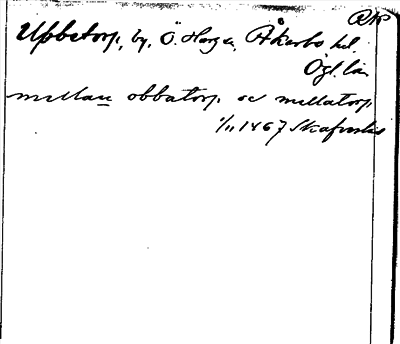 RAP
Ubbetorp, by, Ö. Harg s, Åkerbo hd.
Ögl. län
mellan obbatorp oc mellatorp
1/11 1467 Skafvids